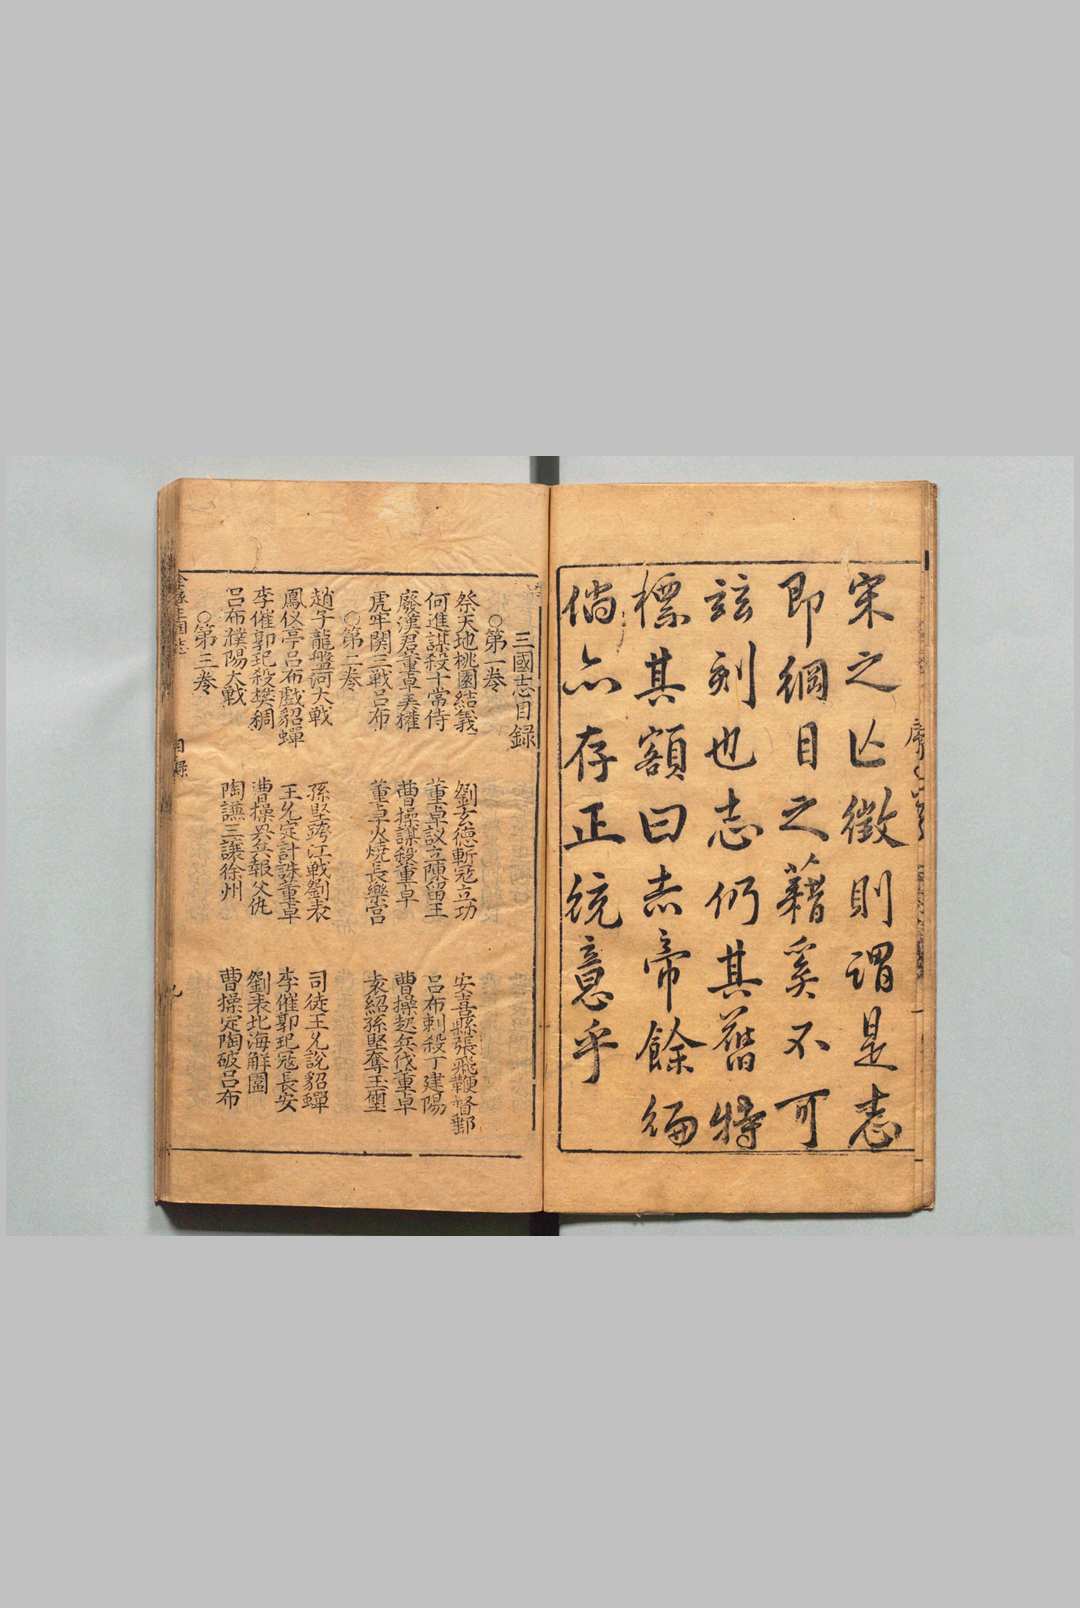 宋之亡徵則謂是志
即綱目之藉奚不可
茲刻也志仍其舊特
標其額曰志帝餘編
倘亦存正統意乎
三國志目錄
○第一卷
祭天地桃園結義 劉玄德斬寇立功 安喜縣張飛鞭督郵
何進謀殺十常侍 董卓議立陳留王 呂布刺殺丁建陽
廢漢君董卓弄權 曹操謀殺董卓 曹操起兵伐董卓
虎牢関三戰呂布 董卓火燒長樂宮 袁紹孫堅奪玉璽
○第二卷
趙子龍盤河大戰 孫堅跨江戰劉表 司徒王允說貂蟬
鳳仪亭呂布戲貂蟬 王允定計誅董卓 李傕郭汜寇長安
李傕郭汜殺樊稠 曹操兴兵報父仇 劉表北海解圍
呂布濮陽大戰 陶謙三讓徐州 曹操定陶破呂布
○第三卷
目錄
九